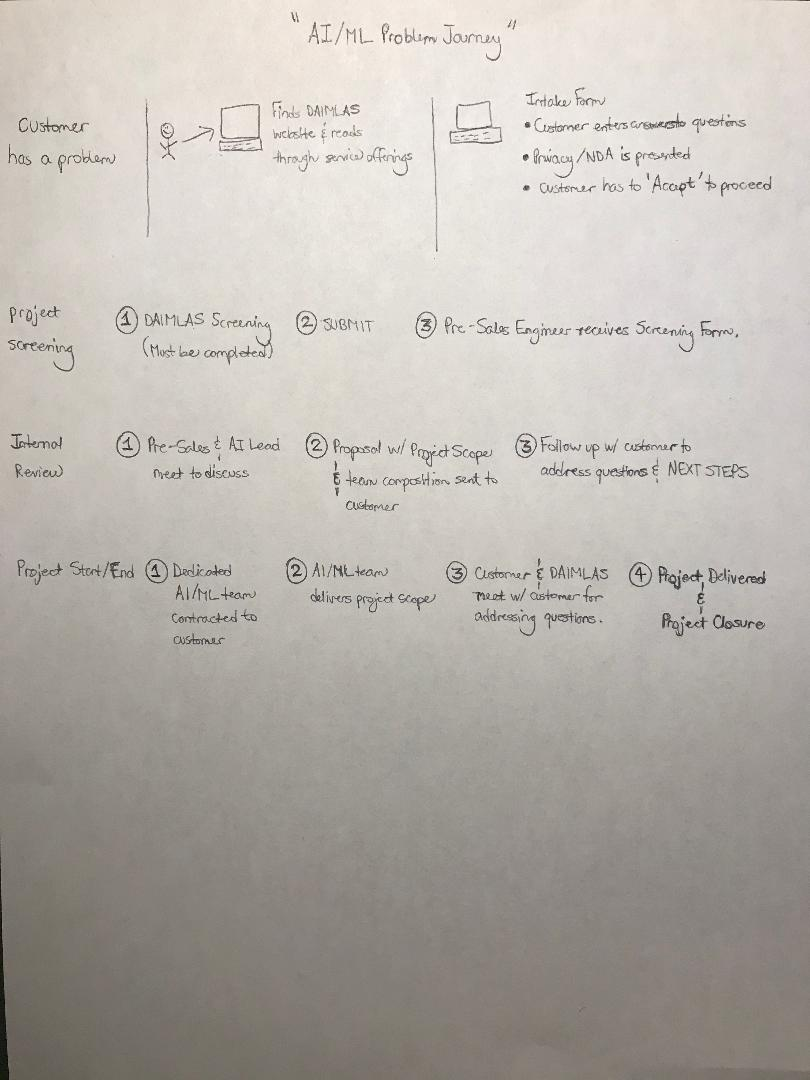 "AI/ML Problem Journey"
Customer
has a problem
Finds DAIMLAS
website & reads
through service offerings
Intake Form
• Customer enters answers to questions
• Privacy/NDA is presented
• Customer has to 'Accept' to proceed
Project
screening
① DAIMLAS Screening
(Must be completed)
② SUBMIT
③ Pre-Sales Engineer receives Screening Form.
Internal
Review
① Pre-Sales & AI Lead
meet to discuss
② Proposal w/ Project Scope
& team composition sent to
customer
③ Follow up w/ customer to
address questions & NEXT STEPS
Project Start/End
① Dedicated
AI/ML team
contracted to
customer
② AI/ML team
delivers project scope
③ Customer & DAIMLAS
meet w/ customer for
addressing questions.
④ Project Delivered
&
Project Closure